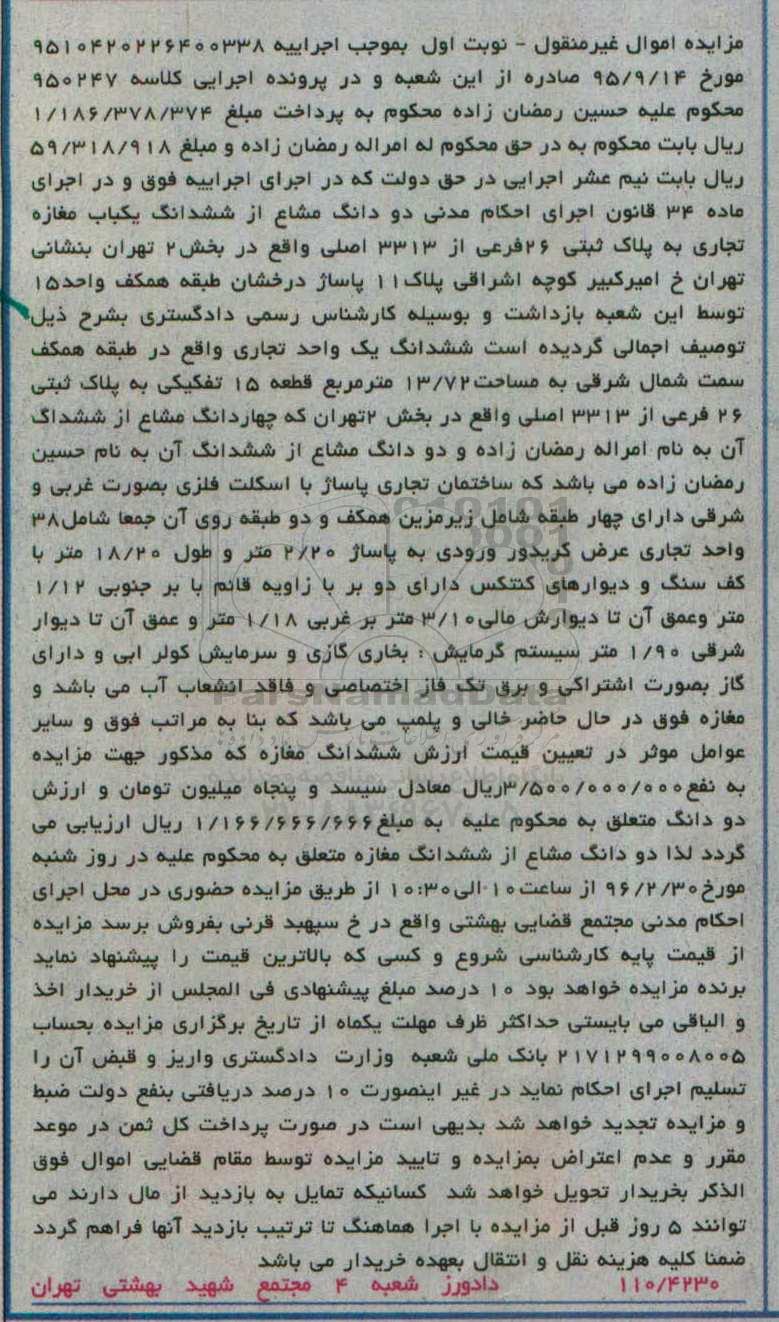 مزایده اموال غیرمنقول - نوبت اول بموجب اجراییه ۹۵۱۰۴۲۰۲۲۶۴۰۰۳۳۸
مورخ ۹۵/۹/۱۴ صادره از این شعبه و در پرونده اجرایی کلاسه ۹۵۰۲۴۷
محکوم علیه حسین رمضان زاده محکوم به پرداخت مبلغ ۱/۱۸۶/۳۷۸/۳۷۴
ریال بابت محکوم به در حق محکوم له امراله رمضان زاده و مبلغ ۵۹/۳۱۸/۹۱۸
ریال بابت نیم عشر اجرایی در حق دولت که در اجرای اجراییه فوق و در اجرای
ماده ۳۴ قانون اجرای احکام مدنی دو دانگ مشاع از ششدانگ یکباب مغازه
تجاری به پلاک ثبتی ۲۶فرعی از ۳۳۱۳ اصلی واقع در بخش۲ تهران بنشانی
تهران خ امیرکبیر کوچه اشراقی پلاک۱۱ پاساژ درخشان طبقه همکف واحد۱۵
توسط این شعبه بازداشت و بوسیله کارشناس رسمی دادگستری بشرح ذیل
توصیف اجمالی گردیده است ششدانگ یک واحد تجاری واقع در طبقه همکف
سمت شمال شرقی به مساحت۱۳/۷۲ مترمربع قطعه ۱۵ تفکیکی به پلاک ثبتی
۲۶ فرعی از ۳۳۱۳ اصلی واقع در بخش ۲تهران که چهاردانگ مشاع از ششداگ
آن به نام امراله رمضان زاده و دو دانگ مشاع از ششدانگ آن به نام حسین
رمضان زاده می باشد که ساختمان تجاری پاساژ با اسکلت فلزی بصورت غربی و
شرقی دارای چهار طبقه شامل زیرمزین همکف و دو طبقه روی آن جمعا شامل۳۸
واحد تجاری عرض کریدور ورودی به پاساژ ۲/۲۰ متر و طول ۱۸/۲۰ متر با
کف سنگ و دیوارهای کنتکس دارای دو بر با زاویه قائم با بر جنوبی ۱/۱۲
متر وعمق آن تا دیوارش مالی۳/۱۰ متر بر غربی ۱/۱۸ متر و عمق آن تا دیوار
شرقی ۱/۹۰ متر سیستم گرمایش : بخاری گازی و سرمایش کولر ابی و دارای
گاز بصورت اشتراکی و برق تک فاز اختصاصی و فاقد انشعاب آب می باشد و
مغازه فوق در حال حاضر خالی و پلمپ می باشد که بنا به مراتب فوق و سایر
عوامل موثر در تعیین قیمت ارزش ششدانگ مغازه که مذکور جهت مزایده
به نفع۳/۵۰۰/۰۰۰/۰۰۰ریال معادل سیسد و پنجاه میلیون تومان و ارزش
دو دانگ متعلق به محکوم علیه به مبلغ۱/۱۶۶/۶۶۶/۶۶۶ ریال ارزیابی می
گردد لذا دو دانگ مشاع از ششدانگ مغازه متعلق به محکوم علیه در روز شنبه
مورخ۹۶/۲/۳۰ از ساعت۱۰الی۱۰:۳۰ از طریق مزایده حضوری در محل اجرای
احکام مدنی مجتمع قضایی بهشتی واقع در خ سپهبد قرنی بفروش برسد مزایده
از قیمت پایه کارشناسی شروع و کسی که بالاترین قیمت را پیشنهاد نماید
برنده مزایده خواهد بود ۱۰ درصد مبلغ پیشنهادی فی المجلس از خریدار اخذ
و الباقی می بایستی حداکثر ظرف مهلت یکماه از تاریخ برگزاری مزایده بحساب
۲۱۷۱۲۹۹۰۰۸۰۰۵ بانک ملی شعبه وزارت دادگستری واریز و قبض آن را
تسلیم اجرای احکام نماید در غیر اینصورت ۱۰ درصد دریافتی بنفع دولت ضبط
و مزایده تجدید خواهد شد بدیهی است در صورت پرداخت کل ثمن در موعد
مقرر و عدم اعتراض بمزایده و تایید مزایده توسط مقام قضایی اموال فوق
الذکر بخریدار تحویل خواهد شد کسانیکه تمایل به بازدید از مال دارند می
توانند ۵ روز قبل از مزایده با اجرا هماهنگ تا ترتیب بازدید آنها فراهم گردد
ضمنا کلیه هزینه نقل و انتقال بعهده خریدار می باشد
۱۱۰/۴۲۳۰ دادورز شعبه ۴ مجتمع شهید بهشتی تهران
ParsNamadData